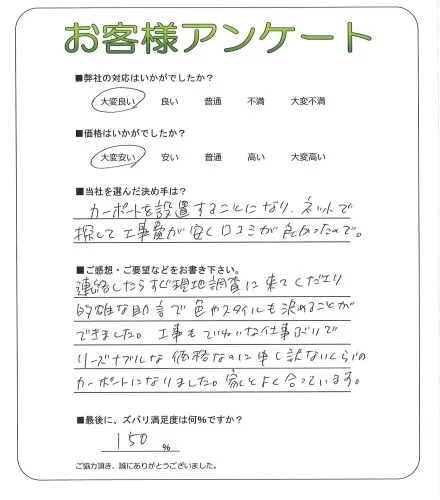 お客様アンケート
■弊社の対応はいかがでしたか？
大変良い 良い 普通 不満 大変不満
■価格はいかがでしたか？
大変安い 安い 普通 高い 大変高い
■当社を選んだ決め手は？
カーポートを設置することになり、ネットで
探して工事費が安く口コミが良かったので。
■ご感想・ご要望などをお書き下さい。
連絡したらすぐ現地調査に来てくださり
的確な助言で色やスタイルも決めることが
できました。工事もていねいな仕事ぶりで
リーズナブルな価格なのに申し訳ないくらいの
カーポートになりました。家とよく合っています。
■最後に、ズバリ満足度は何％ですか？
150 %
ご協力頂き、誠にありがとうございました。